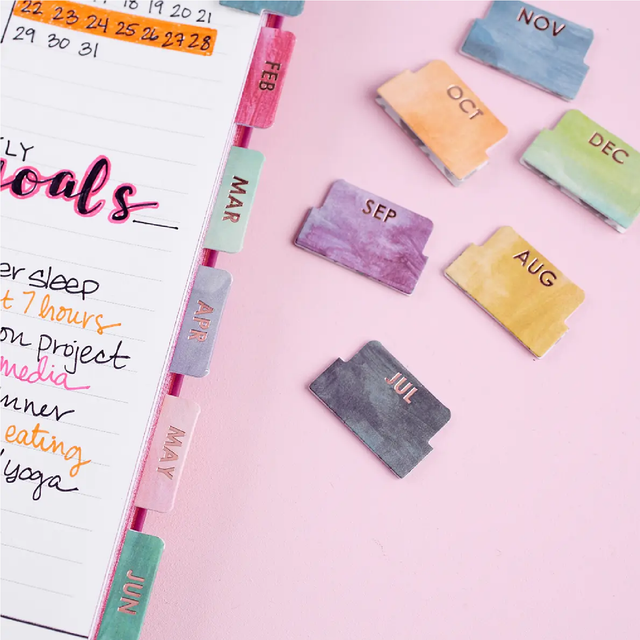 18 19 20 21
22 23 24 25 26 27 28
29 30 31
goals
sleep
7 hours
on project
media
eating
yoga
FEB
MAR
APR
MAY
JUN
NOV
OCT
DEC
SEP
AUG
JUL